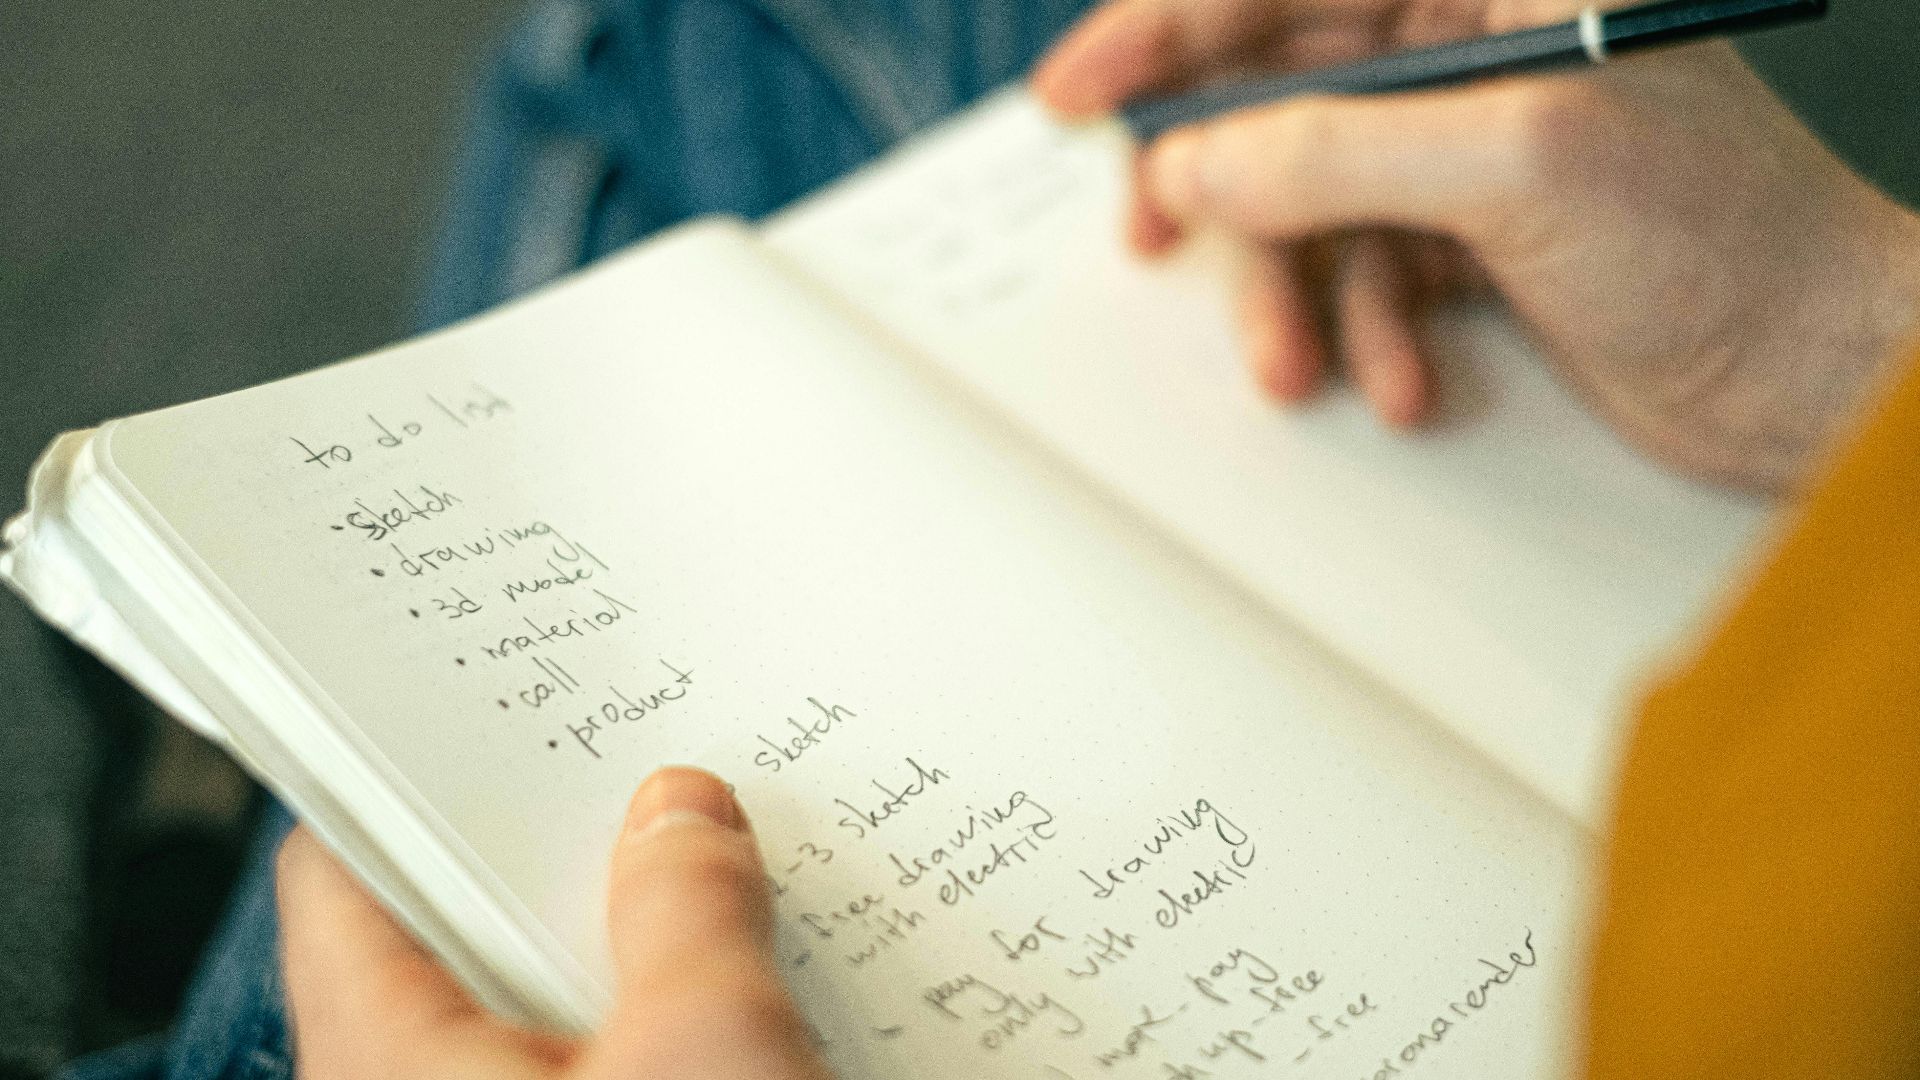 to do list
• sketch
• drawing
• 3d model
• material
• call
• product
sketch
-3 sketch
- free drawing
with electric
- pay for drawing
only with electric
pay
up-free
-free